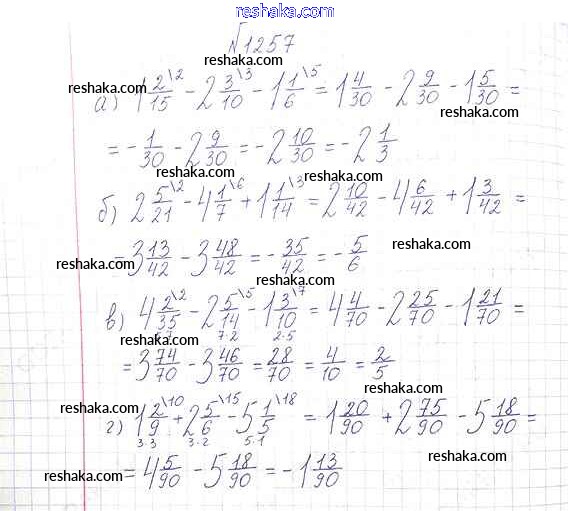 reshaka.com
№1257
reshaka.com reshaka.com
а) 1 2/15 \2 − 2 3/10 \3 − 1 1/6 \5 = 1 4/30 − 2 9/30 − 1 5/30 =
reshaka.com
= − 1/30 − 2 9/30 = −2 10/30 = −2 1/3
reshaka.com
б) 2 5/21 \2 − 4 1/7 \6 + 1 1/14 \3 = 2 10/42 − 4 6/42 + 1 3/42 =
reshaka.com
= 3 13/42 − 3 48/42 = − 35/42 = − 5/6
reshaka.com reshaka.com
в) 4 2/35 \2 − 2 5/14 \5 − 1 3/10 \7 = 4 4/70 − 2 25/70 − 1 21/70 =
5·7 7·2 2·5
reshaka.com reshaka.com
= 3 74/70 − 3 46/70 = 28/70 = 4/10 = 2/5
reshaka.com
г) 1 2/9 \10 + 2 5/6 \15 − 5 1/5 \18 = 1 20/90 + 2 75/90 − 5 18/90 =
3·3 3·2 5·1
reshaka.com
= 4 5/90 − 5 18/90 = −1 13/90
reshaka.com reshaka.com
reshaka.com